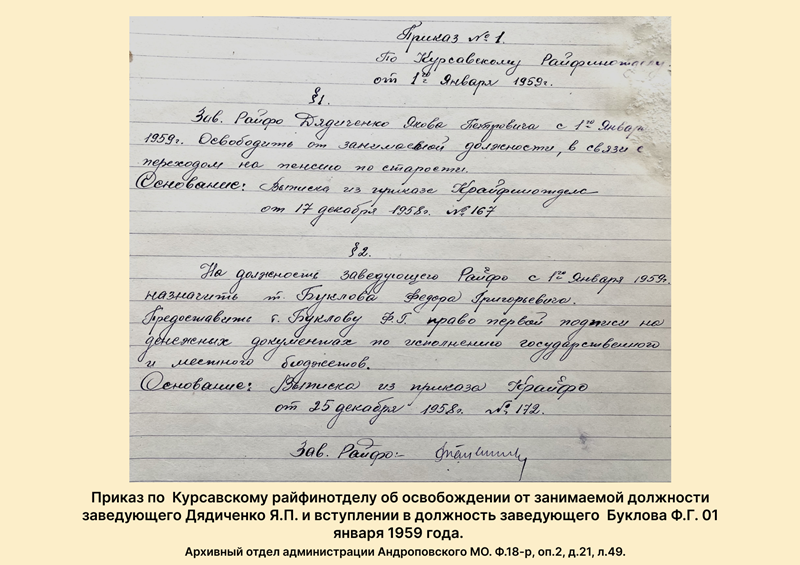 Приказ № 1.
По Курсавскому Райфинотделу
от 1го Января 1959г.
§1.
Зав. Райфо Дядиченко Якова Петровича с 1го Января
1959г. Освободить от занимаемой должности, в связи с
переходом на пенсию по старости.
Основание: Выписка из приказа Крайфинотдела
от 17 декабря 1958г. № 167
§2.
На должность заведующего Райфо с 1го Января 1959г.
назначить т. Буклова Федора Григорьевича.
Предоставить т. Буклову Ф.Г. право первой подписи на
денежных документах по исполнению государственного
и местного бюджетов.
Основание: Выписка из приказа Крайфо
от 25 декабря 1958г. № 172.
Зав. Райфо:-
Приказ по Курсавскому райфинотделу об освобождении от занимаемой должности
заведующего Дядиченко Я.П. и вступлении в должность заведующего Буклова Ф.Г. 01
января 1959 года.
Архивный отдел администрации Андроповского МО. Ф.18-р, оп.2, д.21, л.49.